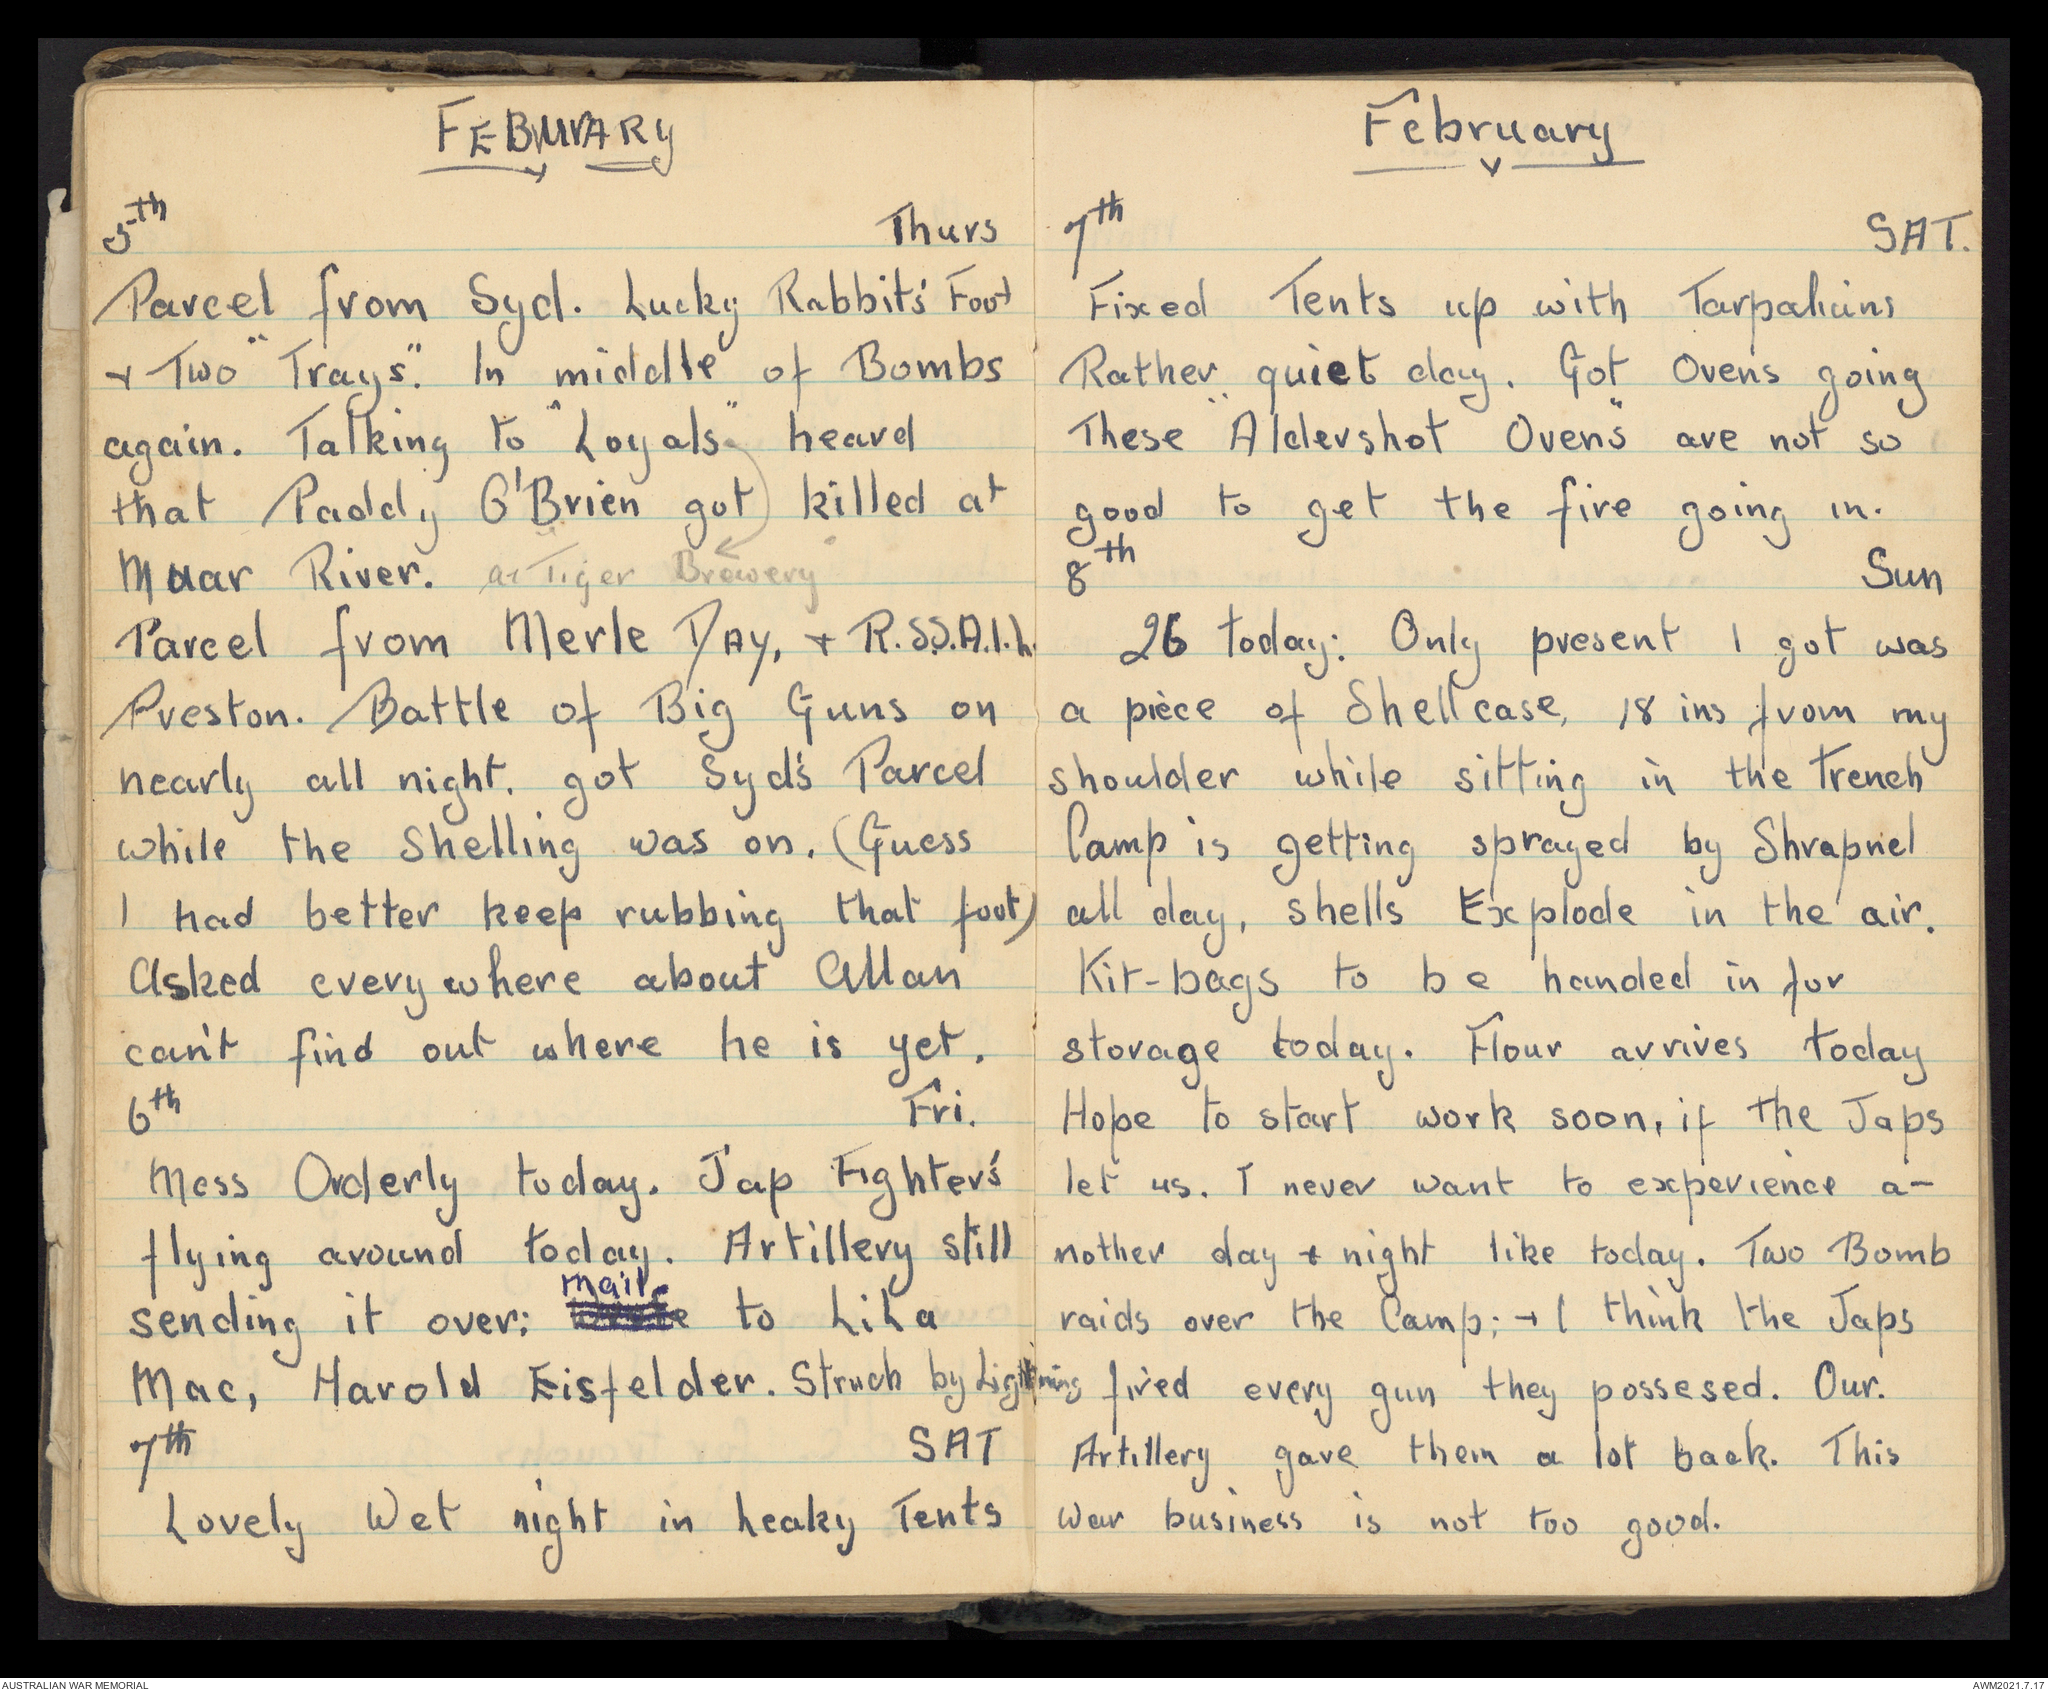 FEBUARY
5th Thurs
Parcel from Syd. Lucky Rabbit's Foot
+ Two "Trays". In middle of Bombs
again. Talking to "Loyals" heard
that Paddy O'Brien got killed at
Muar River. at Tiger Brewery
Parcel from Merle DAY, + R.S.S.A.I.L.
Preston. Battle of Big Guns on
nearly all night. got Syd's Parcel
while the Shelling was on. (Guess
I had better keep rubbing that foot)
Asked everywhere about Allan
can't find out where he is yet.
6th Fri.
Mess Orderly today. Jap Fighter's
flying around today. Artillery still
mail
sending it over; Wrote to LiLa
Mac, Harold Eisfelder. Struck by Lightning
7th SAT
Lovely Wet night in Leaky Tents
February
7th SAT.
Fixed Tents up with Tarpalians
Rather quiet day. Got Ovens going
These "Aldershot Ovens" are not so
good to get the fire going in.
8th Sun
26 today: Only present I got was
a piece of Shell case, 18 ins from my
shoulder while sitting in the Trench
Camp is getting sprayed by Shrapnel
all day, shells Explode in the air.
Kit-bags to be handed in for
storage today. Flour arrives today
Hope to start work soon, if the Japs
let us. I never want to experience a-
nother day + night like today. Two Bomb
raids over the Camp; + I think the Japs
fired every gun they possesed. Our.
Artillery gave them a lot back. This
War business is not too good.
AUSTRALIAN WAR MEMORIAL
AWM2021.7.17